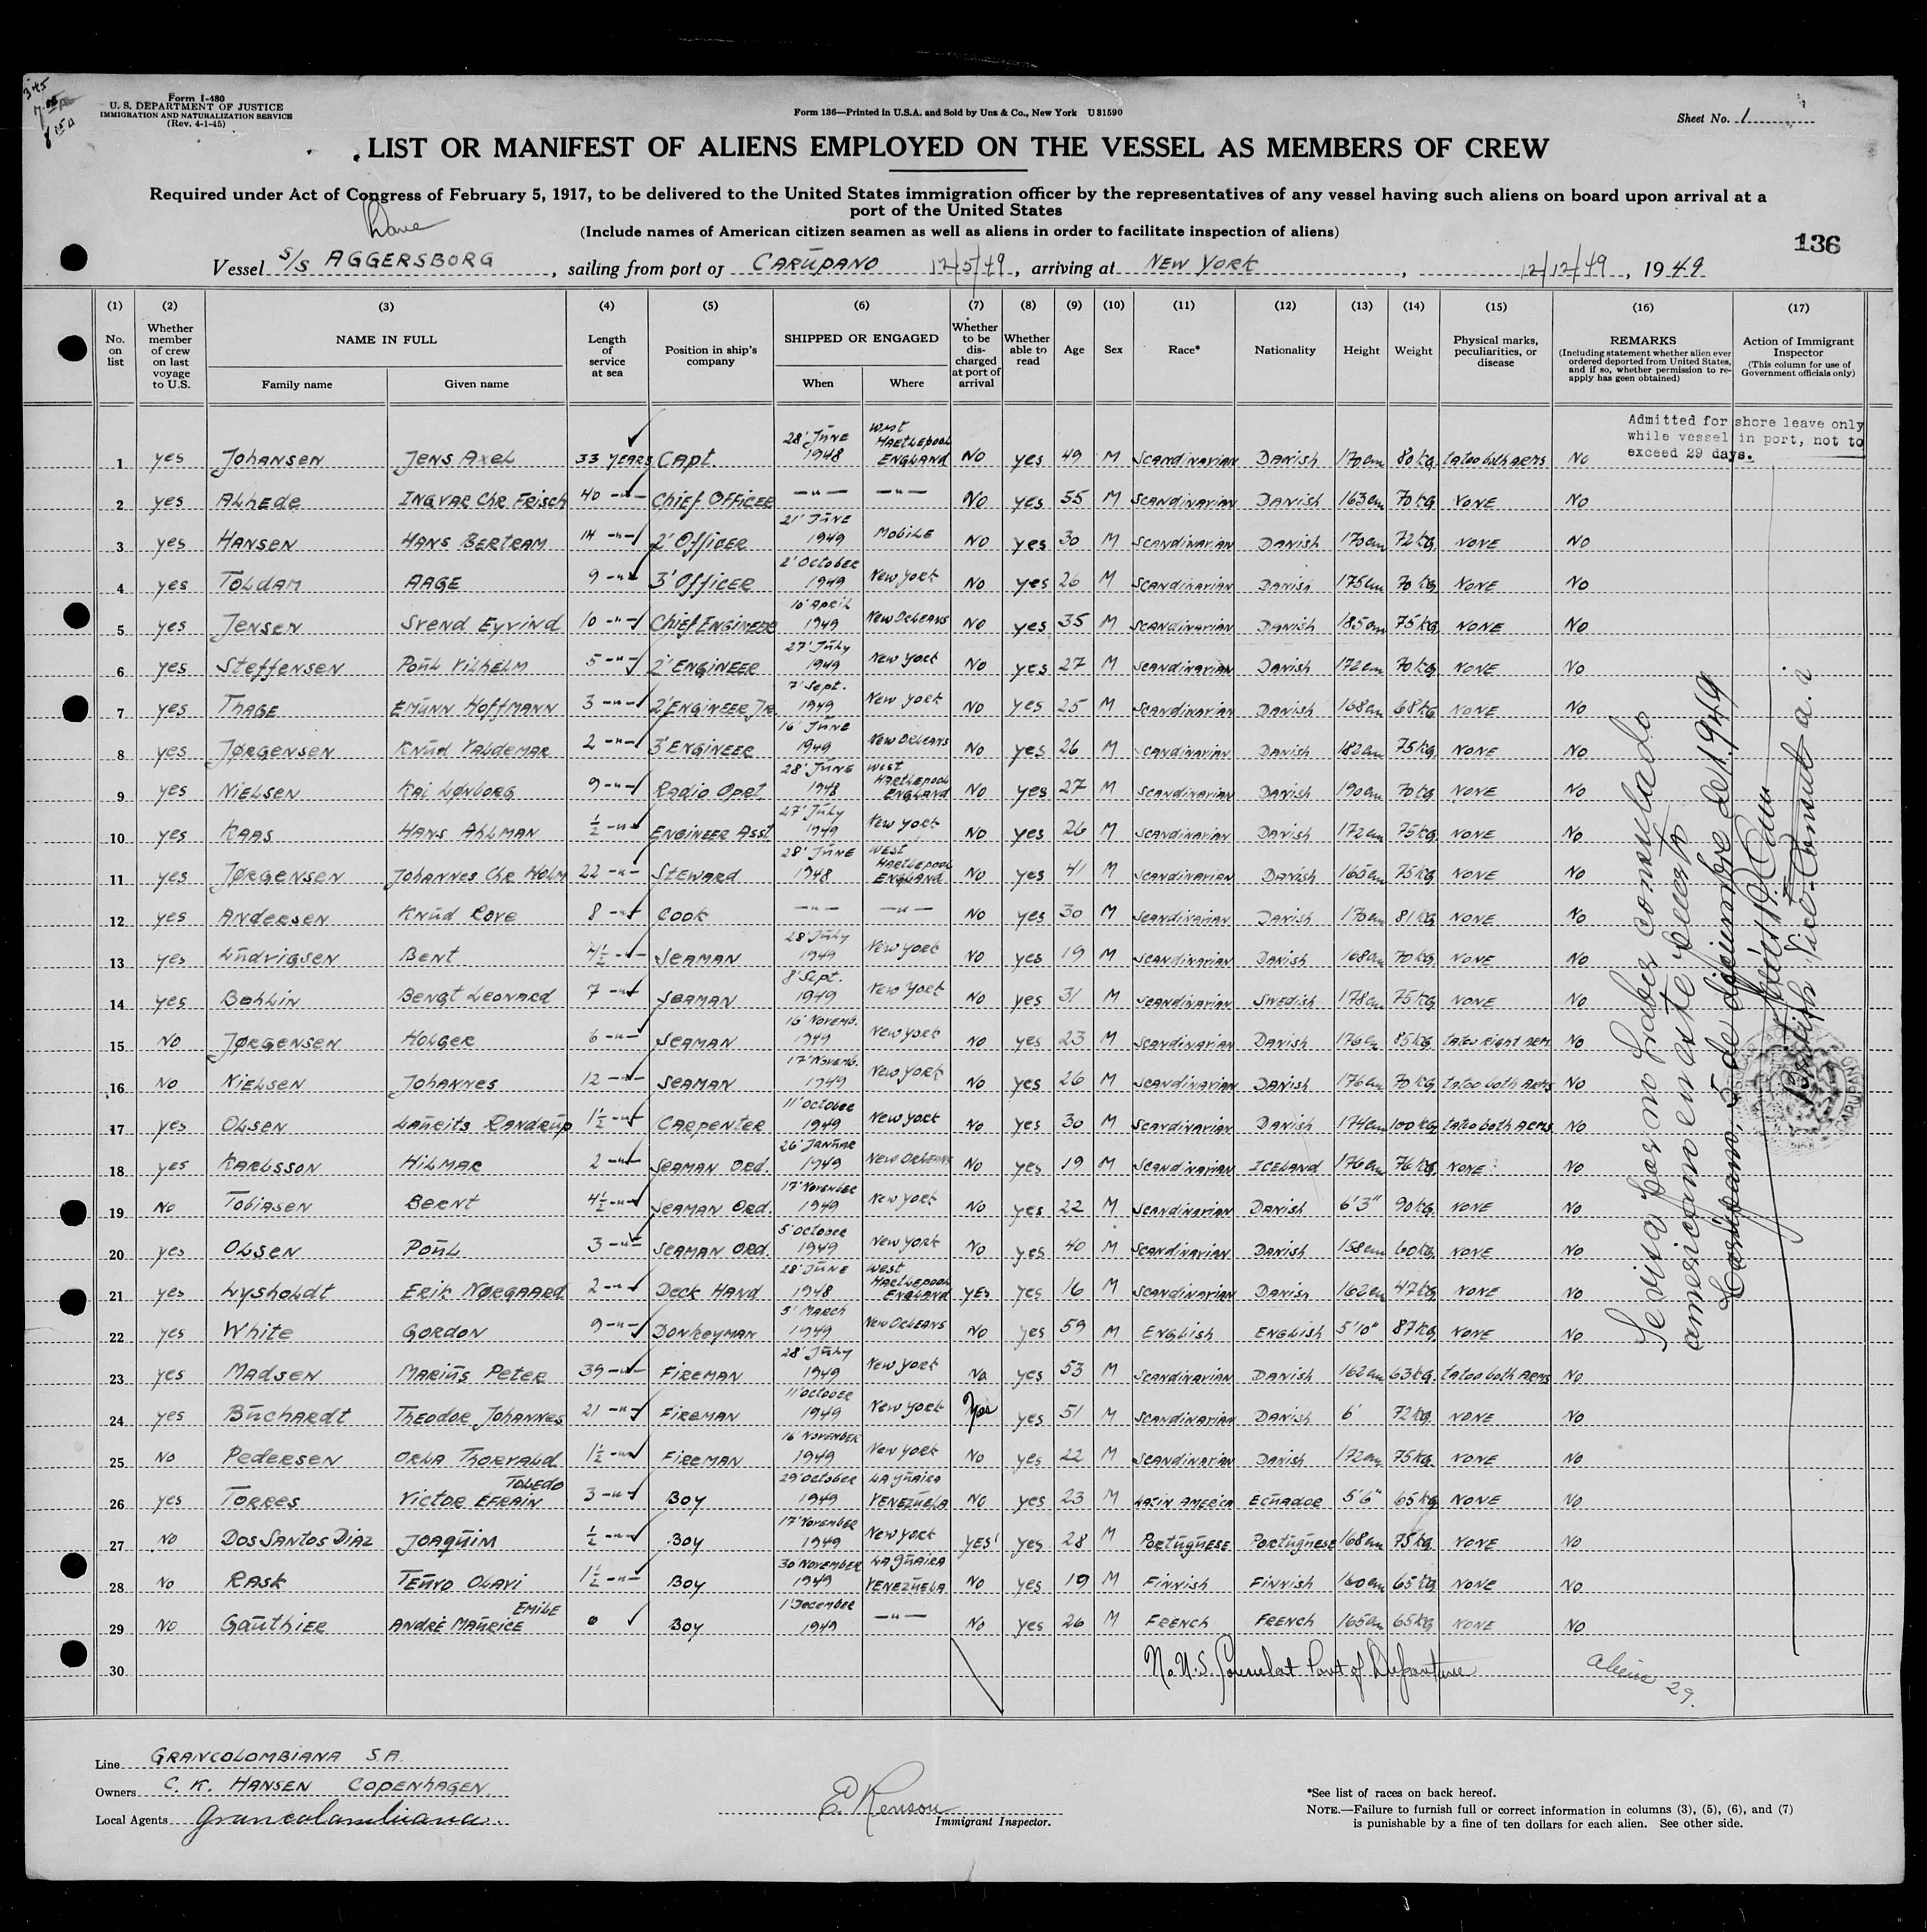 3 45
Form I-480
U. S. DEPARTMENT OF JUSTICE
IMMIGRATION AND NATURALIZATION SERVICE
(Rev. 4-1-45)
Form 136—Printed in U.S.A. and Sold by Unz & Co., New York U 81590
Sheet No. 1
LIST OR MANIFEST OF ALIENS EMPLOYED ON THE VESSEL AS MEMBERS OF CREW
Required under Act of Congress of February 5, 1917, to be delivered to the United States immigration officer by the representatives of any vessel having such aliens on board upon arrival at a
port of the United States
(Include names of American citizen seamen as well as aliens in order to facilitate inspection of aliens)
136
Vessel S/S AGGERSBORG, sailing from port of CARÚPANO 12/5/49, arriving at NEW YORK, 12/12/49, 1949
(1) (2) (3) (4) (5) (6) (7) (8) (9) (10) (11) (12) (13) (14) (15) (16) (17)
No. on list
Whether member of crew on last voyage to U.S.
NAME IN FULL
Family name
Given name
Length of service at sea
Position in ship's company
SHIPPED OR ENGAGED
When
Where
Whether to be dis-charged at port of arrival
Whether able to read
Age
Sex
Race*
Nationality
Height
Weight
Physical marks, peculiarities, or disease
REMARKS
(Including statement whether alien ever ordered deported from United States, and if so, whether permission to re-apply has geen obtained)
Action of Immigrant Inspector
(This column for use of Government officials only)
Admitted for shore leave only
while vessel in port, not to
exceed 29 days.
1 yes Johansen Jens Axel 33 YEARS Capt. 28' June 1948 West Hartlepool England No yes 49 M Scandinavian Danish 170cm 80kg tatoo both arms No
2 yes Alhede Ingvar Chr Frisch 40 -"- Chief Officer -"- -"- No yes 55 M Scandinavian Danish 163cm 70kg None No
3 yes Hansen Hans Bertram 14 -"- 2' Officer 21' June 1949 Mobile No yes 30 M Scandinavian Danish 170cm 72kg None No
4 yes Toldam Aage 9 -"- 3' Officer 2' October 1949 New York No yes 26 M Scandinavian Danish 175cm 70kg None No
5 yes Jensen Svend Eyvind 10 -"- Chief Engineer 10' April 1949 New Orleans No yes 35 M Scandinavian Danish 185cm 75kg None No
6 yes Steffensen Poul Vilhelm 5 -"- 2' Engineer 27' July 1949 New York No yes 27 M Scandinavian Danish 172cm 70kg None No
7 yes Thage Emunn Hoffmann 3 -"- 2' Engineer Jr. 7' Sept. 1949 New York No yes 25 M Scandinavian Danish 168cm 68kg None No
8 yes Jørgensen Knud Valdemar 2 -"- 3' Engineer 16' June 1949 New Orleans No yes 26 M Scandinavian Danish 182cm 75kg None No
9 yes Nielsen Kai Lønborg 9 -"- Radio Oprt. 28' June 1948 West Hartlepool England No yes 27 M Scandinavian Danish 190cm 70kg None No
10 yes Kaas Hans Ahlman ½ -"- Engineer Asst. 27' July 1949 New York No yes 26 M Scandinavian Danish 172cm 75kg None No
11 yes Jørgensen Johannes Chr Holm 22 -"- Steward 28' June 1948 West Hartlepool England No yes 41 M Scandinavian Danish 165cm 75kg None No
12 yes Andersen Knud Rove 8 -"- Cook -"- -"- No yes 30 M Scandinavian Danish 170cm 81kg None No
13 yes Ludvigsen Bent 4½ -"- Seaman 28' July 1949 New York No yes 19 M Scandinavian Danish 168cm 70kg None No
14 yes Bohlin Bengt Leonard 7 -"- Seaman 8' Sept. 1949 New York No yes 31 M Scandinavian Swedish 178cm 75kg None No
15 No Jørgensen Holger 6 -"- Seaman 16' Novemb. 1949 New York No yes 23 M Scandinavian Danish 176cm 85kg tatoo right arm No
16 No Nielsen Johannes 12 -"- Seaman 17' Novemb. 1949 New York No yes 26 M Scandinavian Danish 176cm 70kg tatoo both arms No
17 yes Olsen Laurits Randrup 1½ -"- Carpenter 11' October 1949 New York No yes 30 M Scandinavian Danish 174cm 100kg tatoo both arms No
18 yes Karlsson Hilmar 2 -"- Seaman Ord. 26' Januar 1949 New Orleans No yes 19 M Scandinavian Iceland 176cm 76kg None No
19 No Tobiasen Bernt 4½ -"- Seaman Ord. 17' November 1949 New York No yes 22 M Scandinavian Danish 6'3" 90kg None No
20 yes Olsen Poul 3 -"- Seaman Ord. 5' October 1949 New York No yes 40 M Scandinavian Danish 158cm 60kg None No
21 yes Lysholdt Erik Nørgaard 2 -"- Deck Hand 28' June 1948 West Hartlepool England yes yes 16 M Scandinavian Danish 162cm 47kg None No
22 yes White Gordon 9 -"- Donkeyman 5' March 1949 New Orleans No yes 59 M English English 5'10" 87kg None No
23 yes Madsen Marius Peter 39 -"- Fireman 28' July 1949 New York No yes 53 M Scandinavian Danish 162cm 63kg tatoo both arms No
24 yes Buchardt Theodor Johannes 21 -"- Fireman 11' October 1949 New York Yes yes 51 M Scandinavian Danish 6' 72kg None No
25 No Pedersen Orla Thorvald 1½ -"- Fireman 16' November 1949 New York No yes 22 M Scandinavian Danish 172cm 75kg None No
26 yes Torres Victor Efrain Toledo 3 -"- Boy 29' October 1949 La Guaira Venezuela No yes 23 M Latin America Ecuador 5'6" 65kg None No
27 No Dos Santos Diaz Joaquim ½ -"- Boy 17' November 1949 New York yes yes 28 M Portuguese Portuguese 168cm 75kg None No
28 No Rask Teuvo Olavi 1½ -"- Boy 30 November 1949 La Guaira Venezuela No yes 19 M Finnish Finnish 160cm 65kg None No
29 No Gauthier André Maurice Emile 0 Boy 1' December 1949 -"- No yes 26 M French French 165cm 65kg None No
30
No U.S. Consulat Port of Departure
aliens 29.
Se visa por no haber consulado
americano en este puerto
Carúpano, 5 de diciembre de 1949
British Vice-Consul a. i
Line GRANCOLOMBIANA S.A.
Owners C. K. HANSEN COPENHAGEN
Local Agents Grancolombiana
E. Renson
Immigrant Inspector.
*See list of races on back hereof.
NOTE.—Failure to furnish full or correct information in columns (3), (5), (6), and (7)
is punishable by a fine of ten dollars for each alien. See other side.